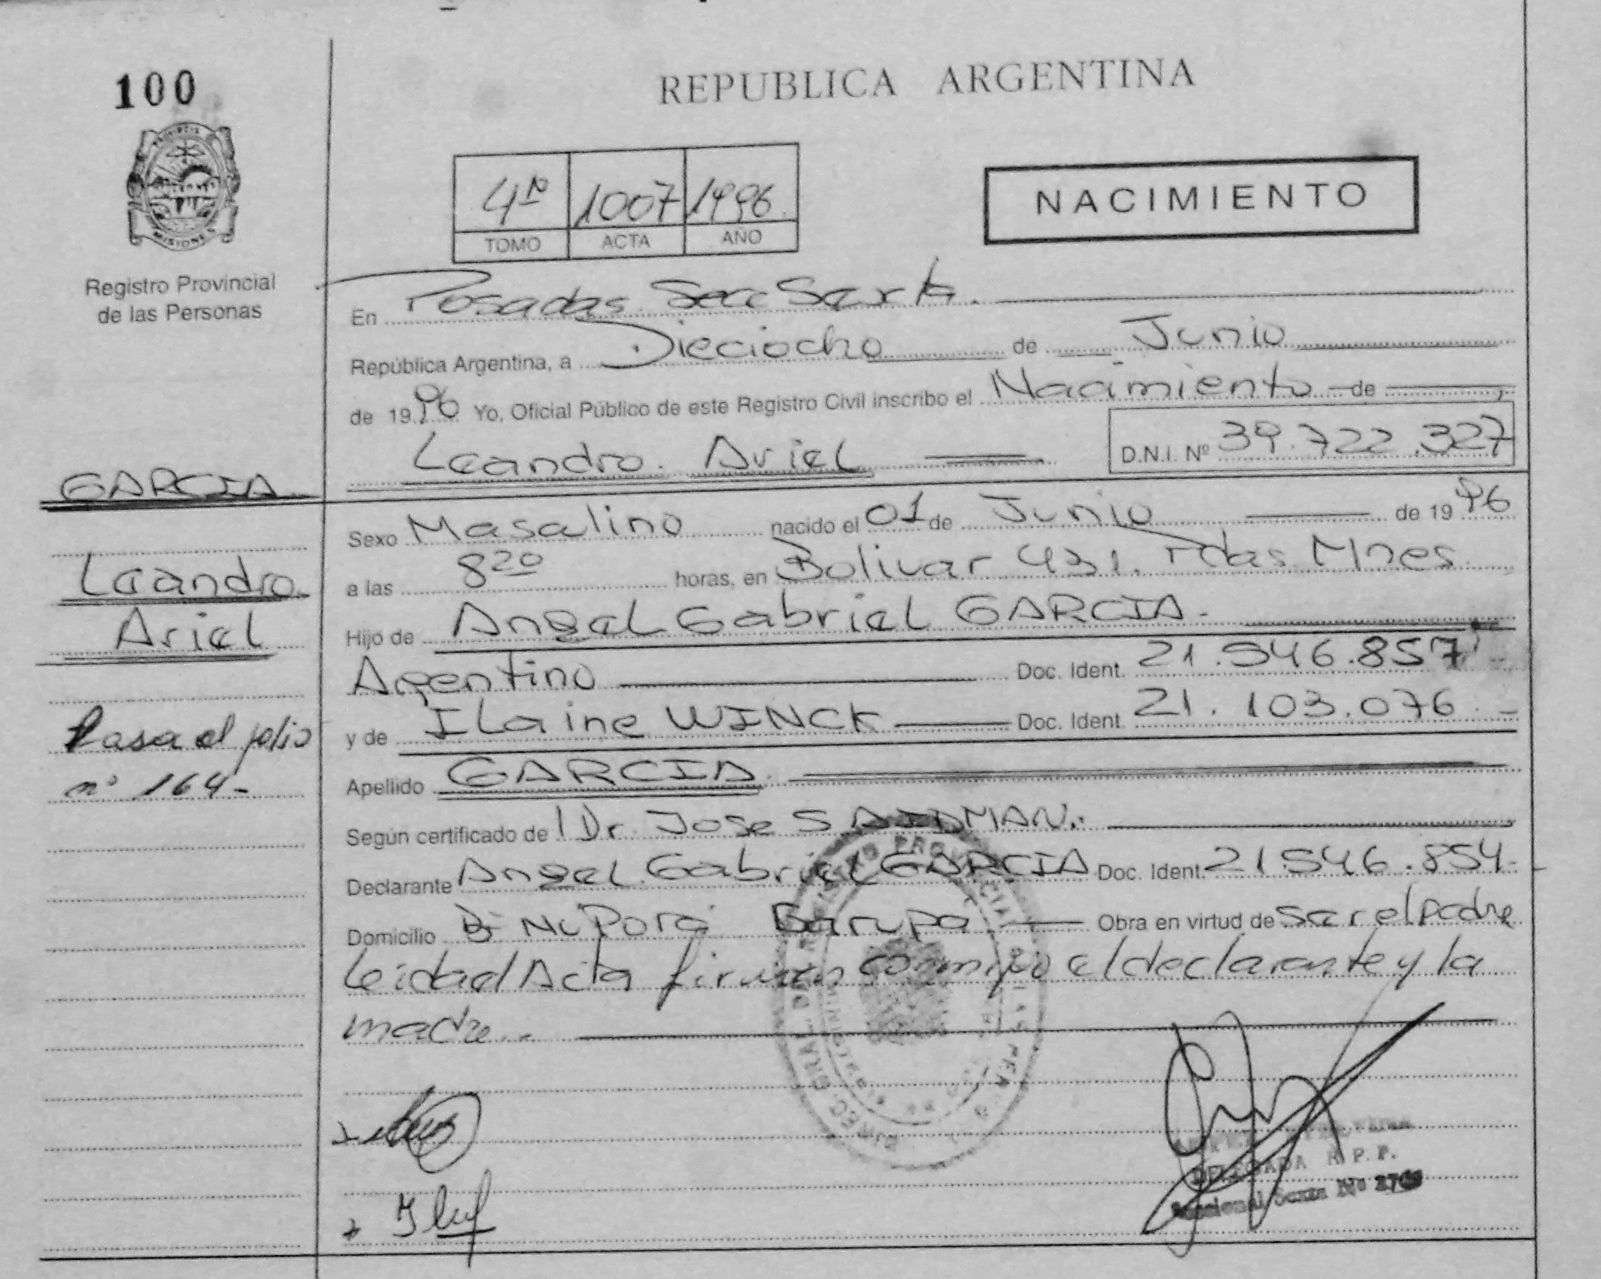 100
REPUBLICA ARGENTINA
PROVINCIA
MISIONES
Registro Provincial
de las Personas
4º 1007 1996
TOMO ACTA AÑO
NACIMIENTO
En Posadas Sec Sexta.
República Argentina, a Dieciocho de Junio
de 1996 Yo, Oficial Público de este Registro Civil inscribo el Nacimiento de
Leandro Ariel D.N.I. Nº 39.722.327
GARCIA
Leandro
Ariel
Pasa al folio
nº 164-
Sexo Masculino nacido el 01 de Junio de 1996
a las 8 20 horas, en Bolivar 431. Pdas Mnes.
Hijo de Angel Gabriel GARCIA.
Argentino Doc. Ident. 21.546.857
y de ILaine WINCK Doc. Ident. 21.103.076
Apellido GARCIA
Según certificado de Dr. Jose SAIDMAN.
Declarante Angel Gabriel GARCIA Doc. Ident. 21.546.854-
Domicilio Bº Garupa Obra en virtud de ser el padre
leida el Acta firman conmigo el declarante y la
madre..
DELEGADA R.P.P.
Seccional Sexta Nº